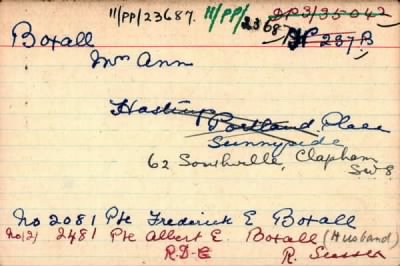 11/PP/23687. 11/PP/
2368
DP3/35042
237B
Boxall
Mrs Ann
Portland Place
Sunnyside
62 Southville, Clapham
SW8
No 2081 Pte Frederick E Boxall
No(2) 2481 Pte Albert E. Boxall (Husband)
R. Sussex